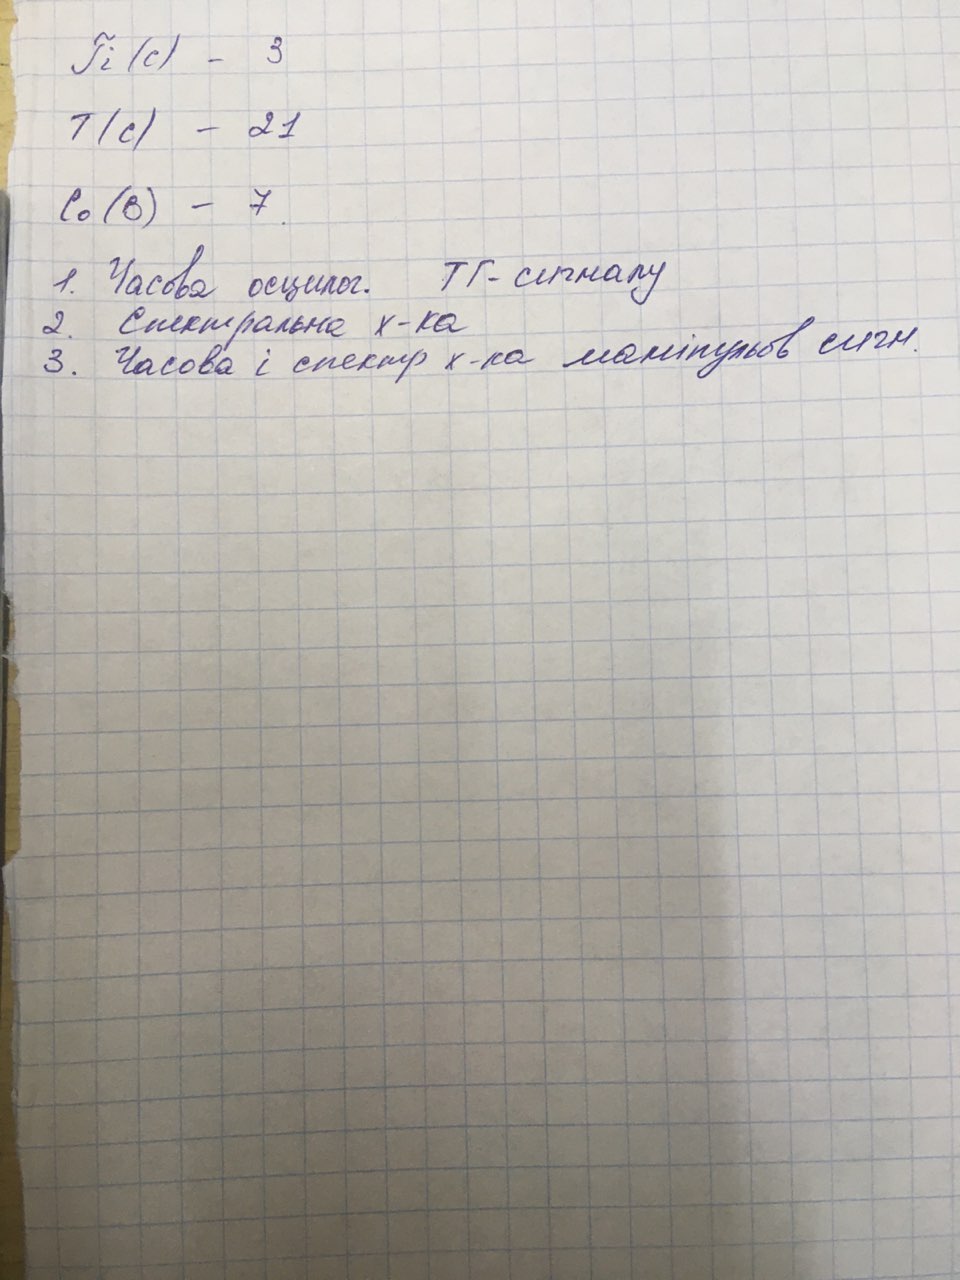 Ti (с) - 3
T (с) - 21
C₀ (В) - 7.
1. Часова осцилог. ТГ-сигналу
2. Спектральна х-ка
3. Часова і спектр х-ка маніпульов сигн.